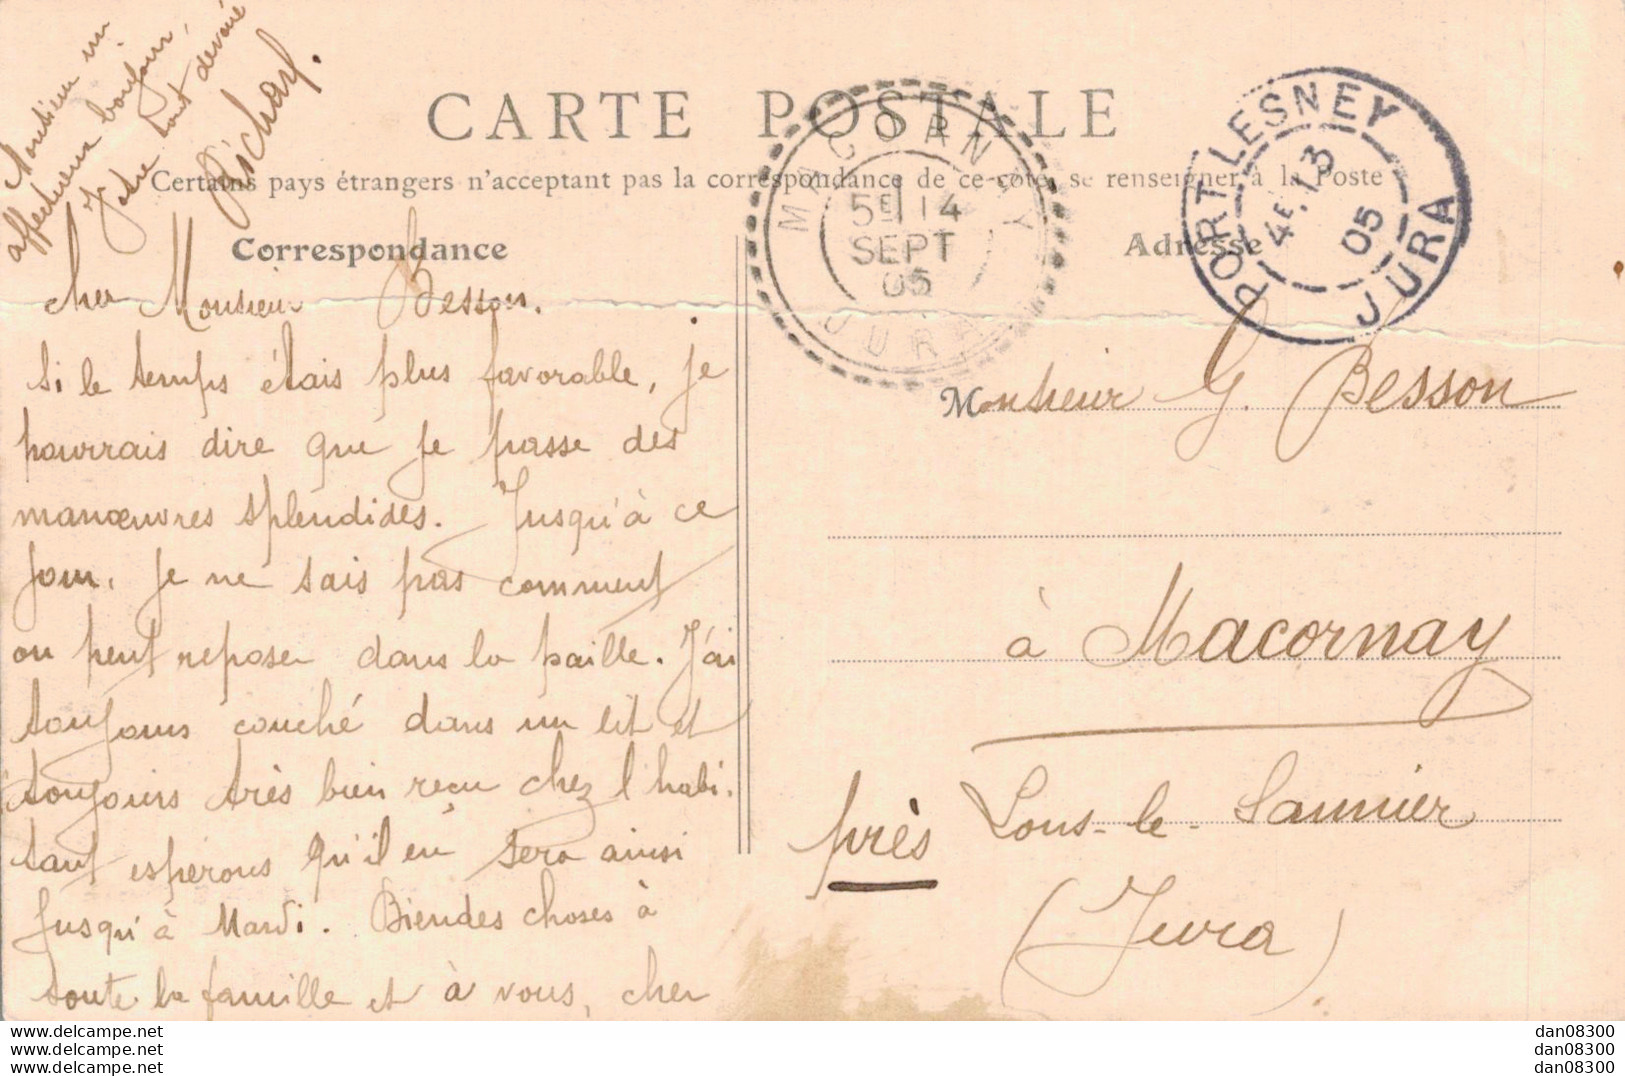 CARTE POSTALE
Certains pays étrangers n'acceptent pas la correspondance de ce côté, se renseigner à la Poste
Correspondance
Adresse
cher Monsieur Besson.
si le temps étais plus favorable, je
pourrais dire que je passe des
manœuvres splendides. Jusqu'à ce
jour, je ne sais pas comment
on peut reposer dans la paille. J'ai
toujours couché dans un lit et
toujours très bien reçu chez l'habi-
tant espérons qu'il en sera ainsi
jusqu'à Mardi. Biendes choses à
toute la famille et à vous, cher
Monsieur un
affectueux bonjour,
Votre tout dévoué
Richard.
MACORNAY
5E 14
SEPT
05
JURA
PORT-LESNEY
4E 13
05
JURA
Monsieur G. Besson
à Macornay
près Lons-le-Saunier
(Jura)
www.delcampe.net
www.delcampe.net
www.delcampe.net
dan08300
dan08300
dan08300